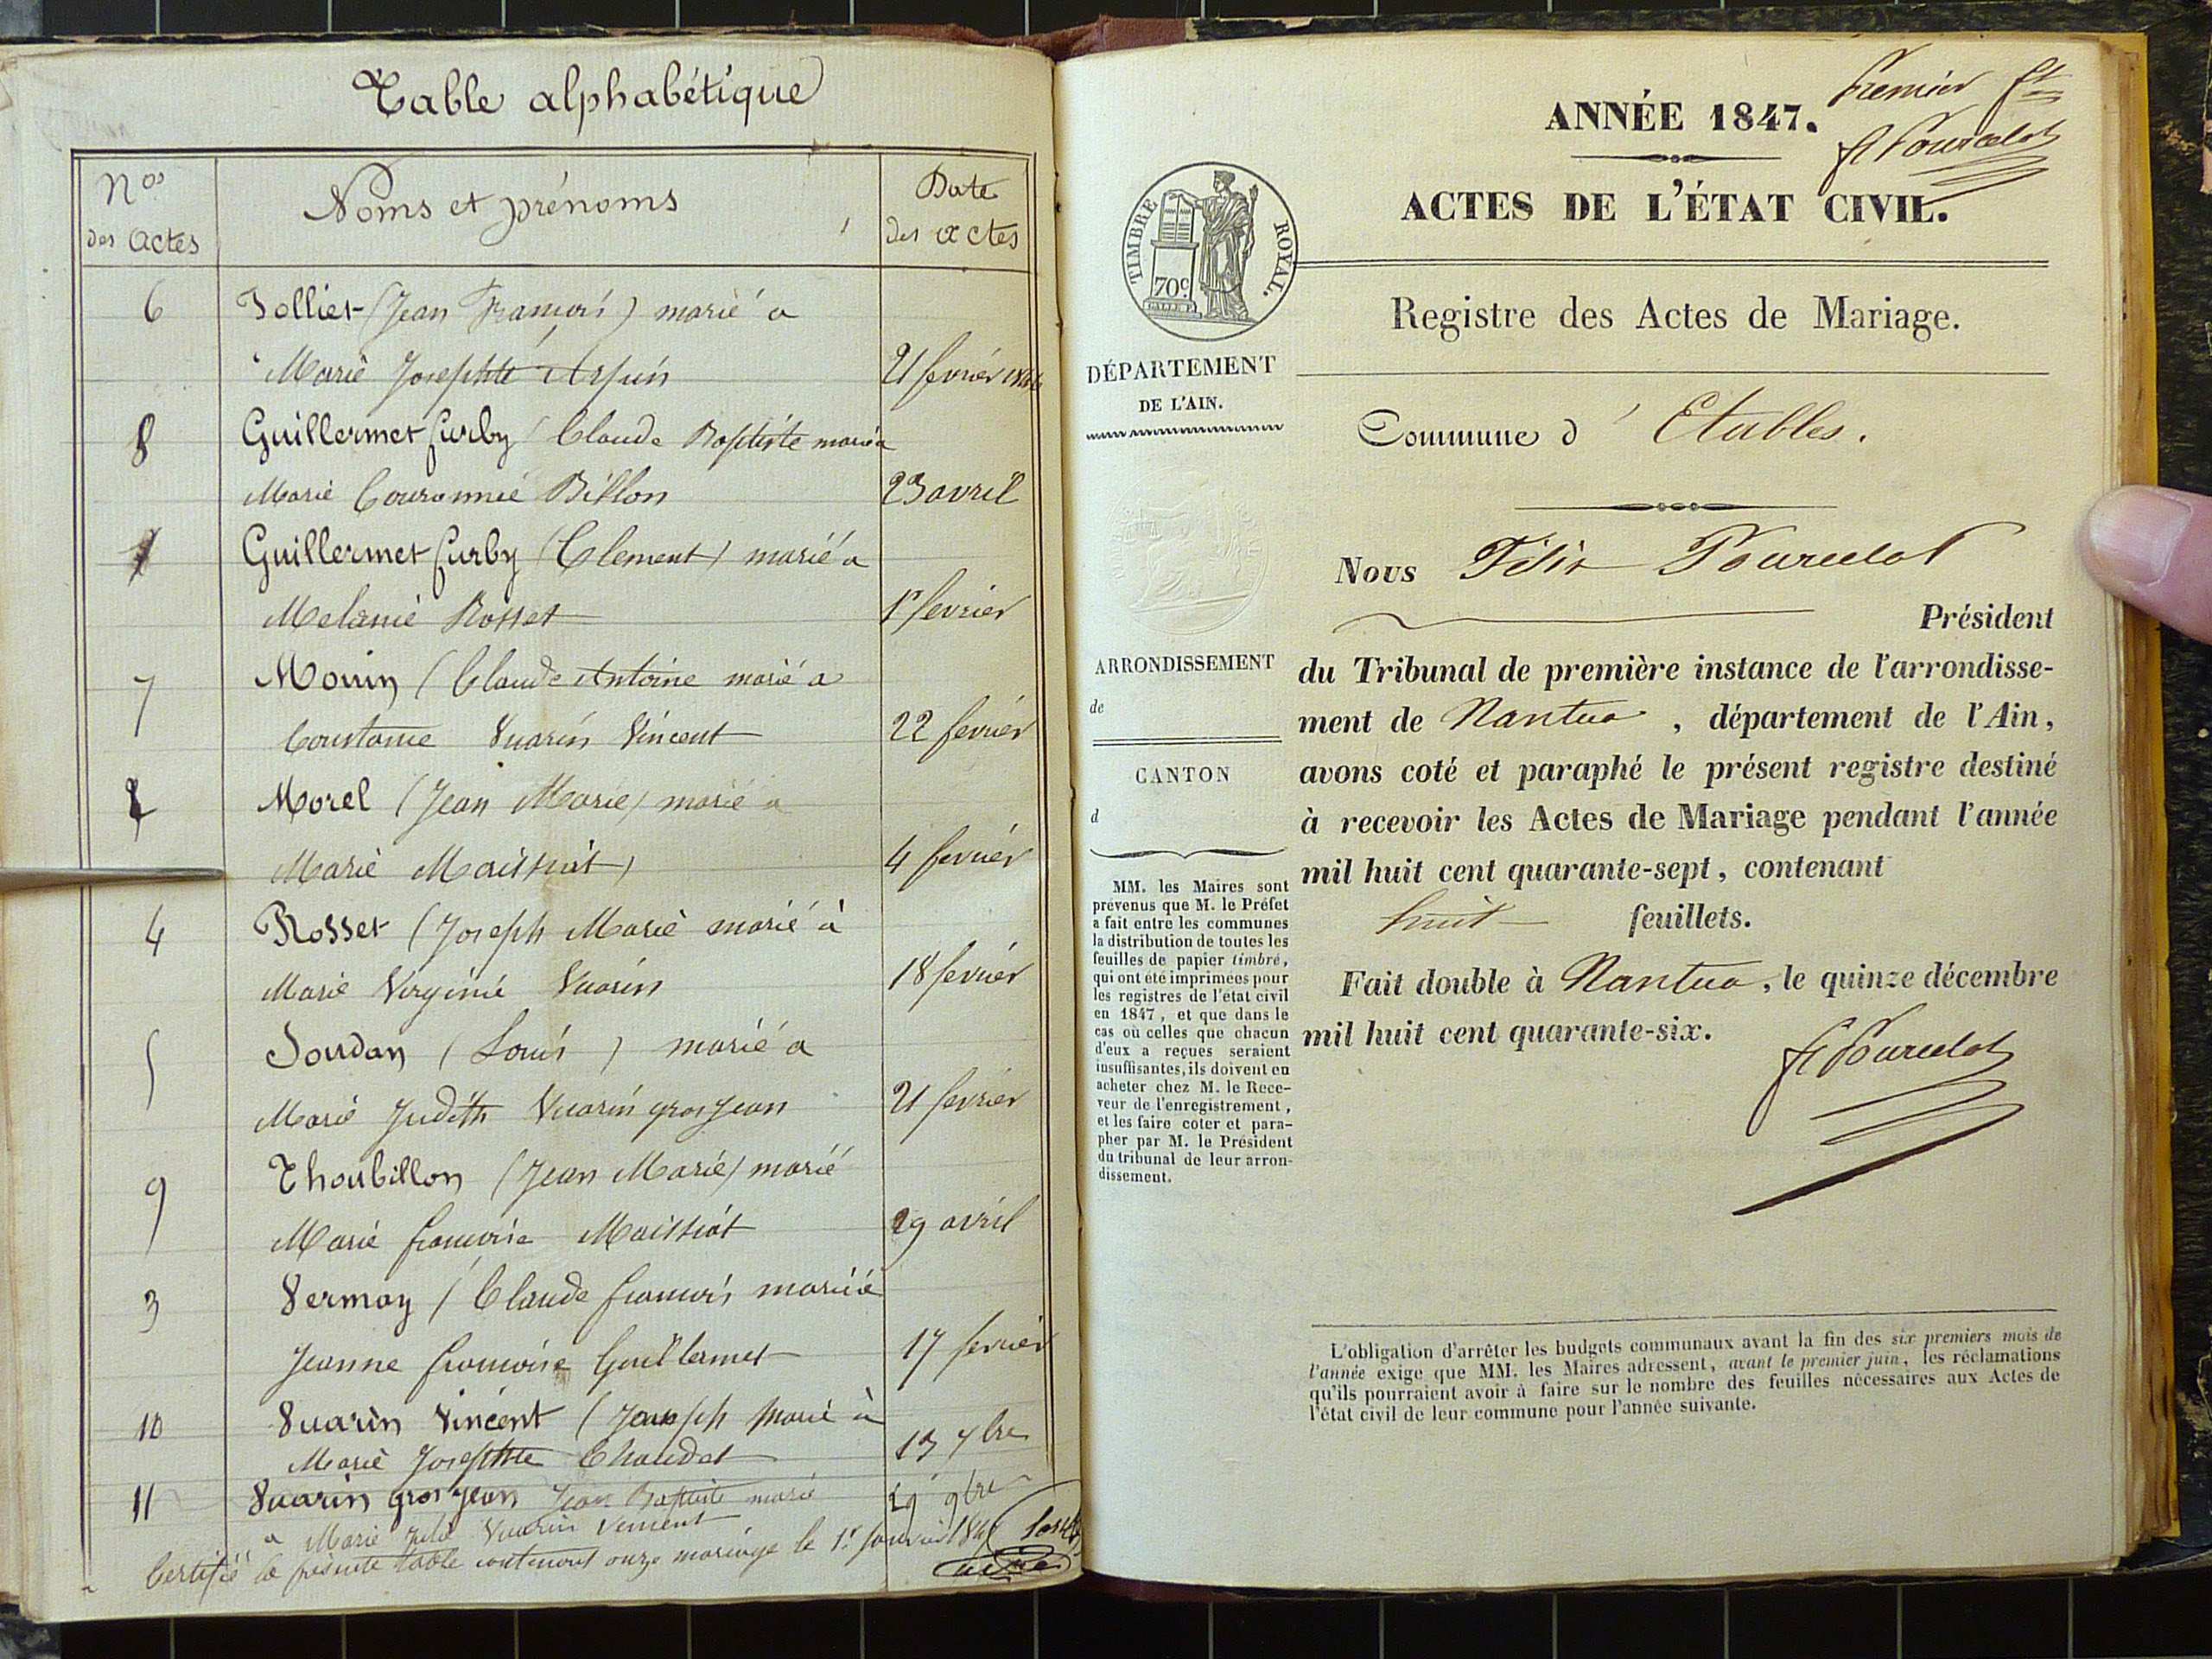 Table alphabétique
Nos
des actes
Noms et prénoms
Date
des actes
6 Jolliet (Jean François) marié a
Marie Josephte Arpin 21 fevrier 1846
8 Guillermet furby (Claude Baptiste marié a
Marie Couronnée Billon 23 avril
1 Guillermet furby (Clement) marié a
Melanie Rosset 1r fevrier
7 Monin (Claude Antoine marié a
Constance Vuarin Vincent 22 fevrier
2 Morel (Jean Marie) marié a
Marie Maissiat) 4 fevrier
4 Rosset (Joseph Marie marié à
Marie Virginie Vuarin 18 fevrier
5 Sourdan (Louis) marié a
Marie Judith Vuarin grosjean 21 fevrier
9 Thoubillon (Jean Marie) marié
Marie francoise Maissiat 29 avril
3 Vermay (Claude francois marié a
Jeanne francoise Guillermet 17 fevrier
10 Vuarin Vincent (Joseph marié à
Marie Josephte Chaudet 13 7bre
11 Vuarin grosjean Jean Baptiste marié 29 9bre
a Marie Julie Vuarin Vincent
Certifié la présente table contenant onze mariage le 1r Janvier 1847
ANNÉE 1847.
Premier ft
ff Pourcelot
ACTES DE L'ÉTAT CIVIL.
TIMBRE ROYAL.
70c
Registre des Actes de Mariage.
DÉPARTEMENT
DE L'AIN.
Commune d' Etables.
Nous Félix Pourcelot
Président
ARRONDISSEMENT
de
CANTON
d
du Tribunal de première instance de l'arrondisse-
ment de Nantua, département de l'Ain,
avons coté et paraphé le présent registre destiné
à recevoir les Actes de Mariage pendant l'année
mil huit cent quarante-sept, contenant
huit feuillets.
Fait double à Nantua, le quinze décembre
mil huit cent quarante-six.
ff Pourcelot
MM. les Maires sont
prévenus que M. le Préfet
a fait entre les communes
la distribution de toutes les
feuilles de papier timbré,
qui ont été imprimées pour
les registres de l'état civil
en 1847, et que dans le
cas où celles que chacun
d'eux a reçues seraient
insuffisantes, ils doivent en
acheter chez M. le Rece-
veur de l'enregistrement,
et les faire coter et para-
pher par M. le Président
du tribunal de leur arron-
dissement.
L'obligation d'arrêter les budgets communaux avant la fin des six premiers mois de
l'année exige que MM. les Maires adressent, avant le premier juin, les réclamations
qu'ils pourraient avoir à faire sur le nombre des feuilles nécessaires aux Actes de
l'état civil de leur commune pour l'année suivante.